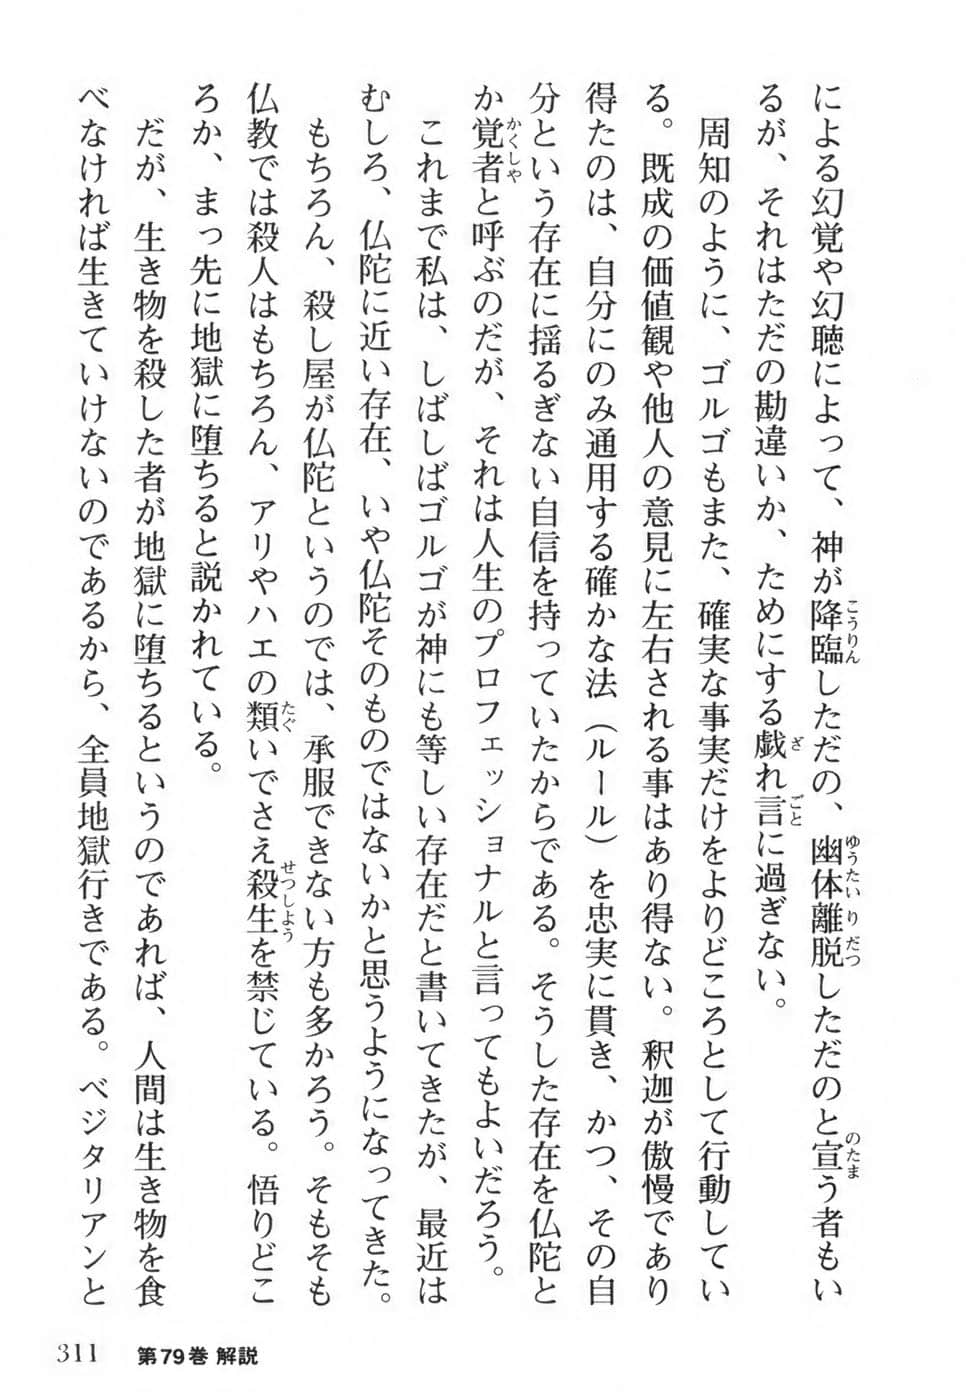 による幻覚や幻聴によって、神が降臨しただの、幽体離脱しただのと宣う者もい
るが、それはただの勘違いか、ためにする戯れ言に過ぎない。
周知のように、ゴルゴもまた、確実な事実だけをよりどころとして行動してい
る。既成の価値観や他人の意見に左右される事はあり得ない。釈迦が傲慢であり
得たのは、自分にのみ通用する確かな法（ルール）を忠実に貫き、かつ、その自
分という存在に揺るぎない自信を持っていたからである。そうした存在を仏陀と
か覚者と呼ぶのだが、それは人生のプロフェッショナルと言ってもよいだろう。
これまで私は、しばしばゴルゴが神にも等しい存在だと書いてきたが、最近は
むしろ、仏陀に近い存在、いや仏陀そのものではないかと思うようになってきた。
もちろん、殺し屋が仏陀というのでは、承服できない方も多かろう。そもそも
仏教では殺人はもちろん、アリやハエの類いでさえ殺生を禁じている。悟りどこ
ろか、まっ先に地獄に堕ちると説かれている。
だが、生き物を殺した者が地獄に堕ちるというのであれば、人間は生き物を食
べなければ生きていけないのであるから、全員地獄行きである。ベジタリアンと
こうりん
ゆうたいりだつ
のたま
ざ
ごと
かくしや
たぐ
せつしよう
311 第79巻 解説